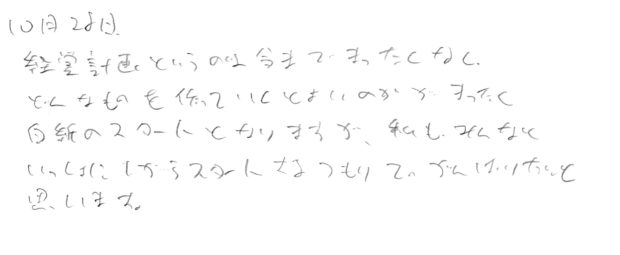 10月28日.
経営計画というのは今までまったくなく、
どんなものを作っていくとよいのかがまったく
白紙のスタートとなりますが、私も、みんなと
いっしょに1からスタートするつもりで、がんばりたいと
思います。